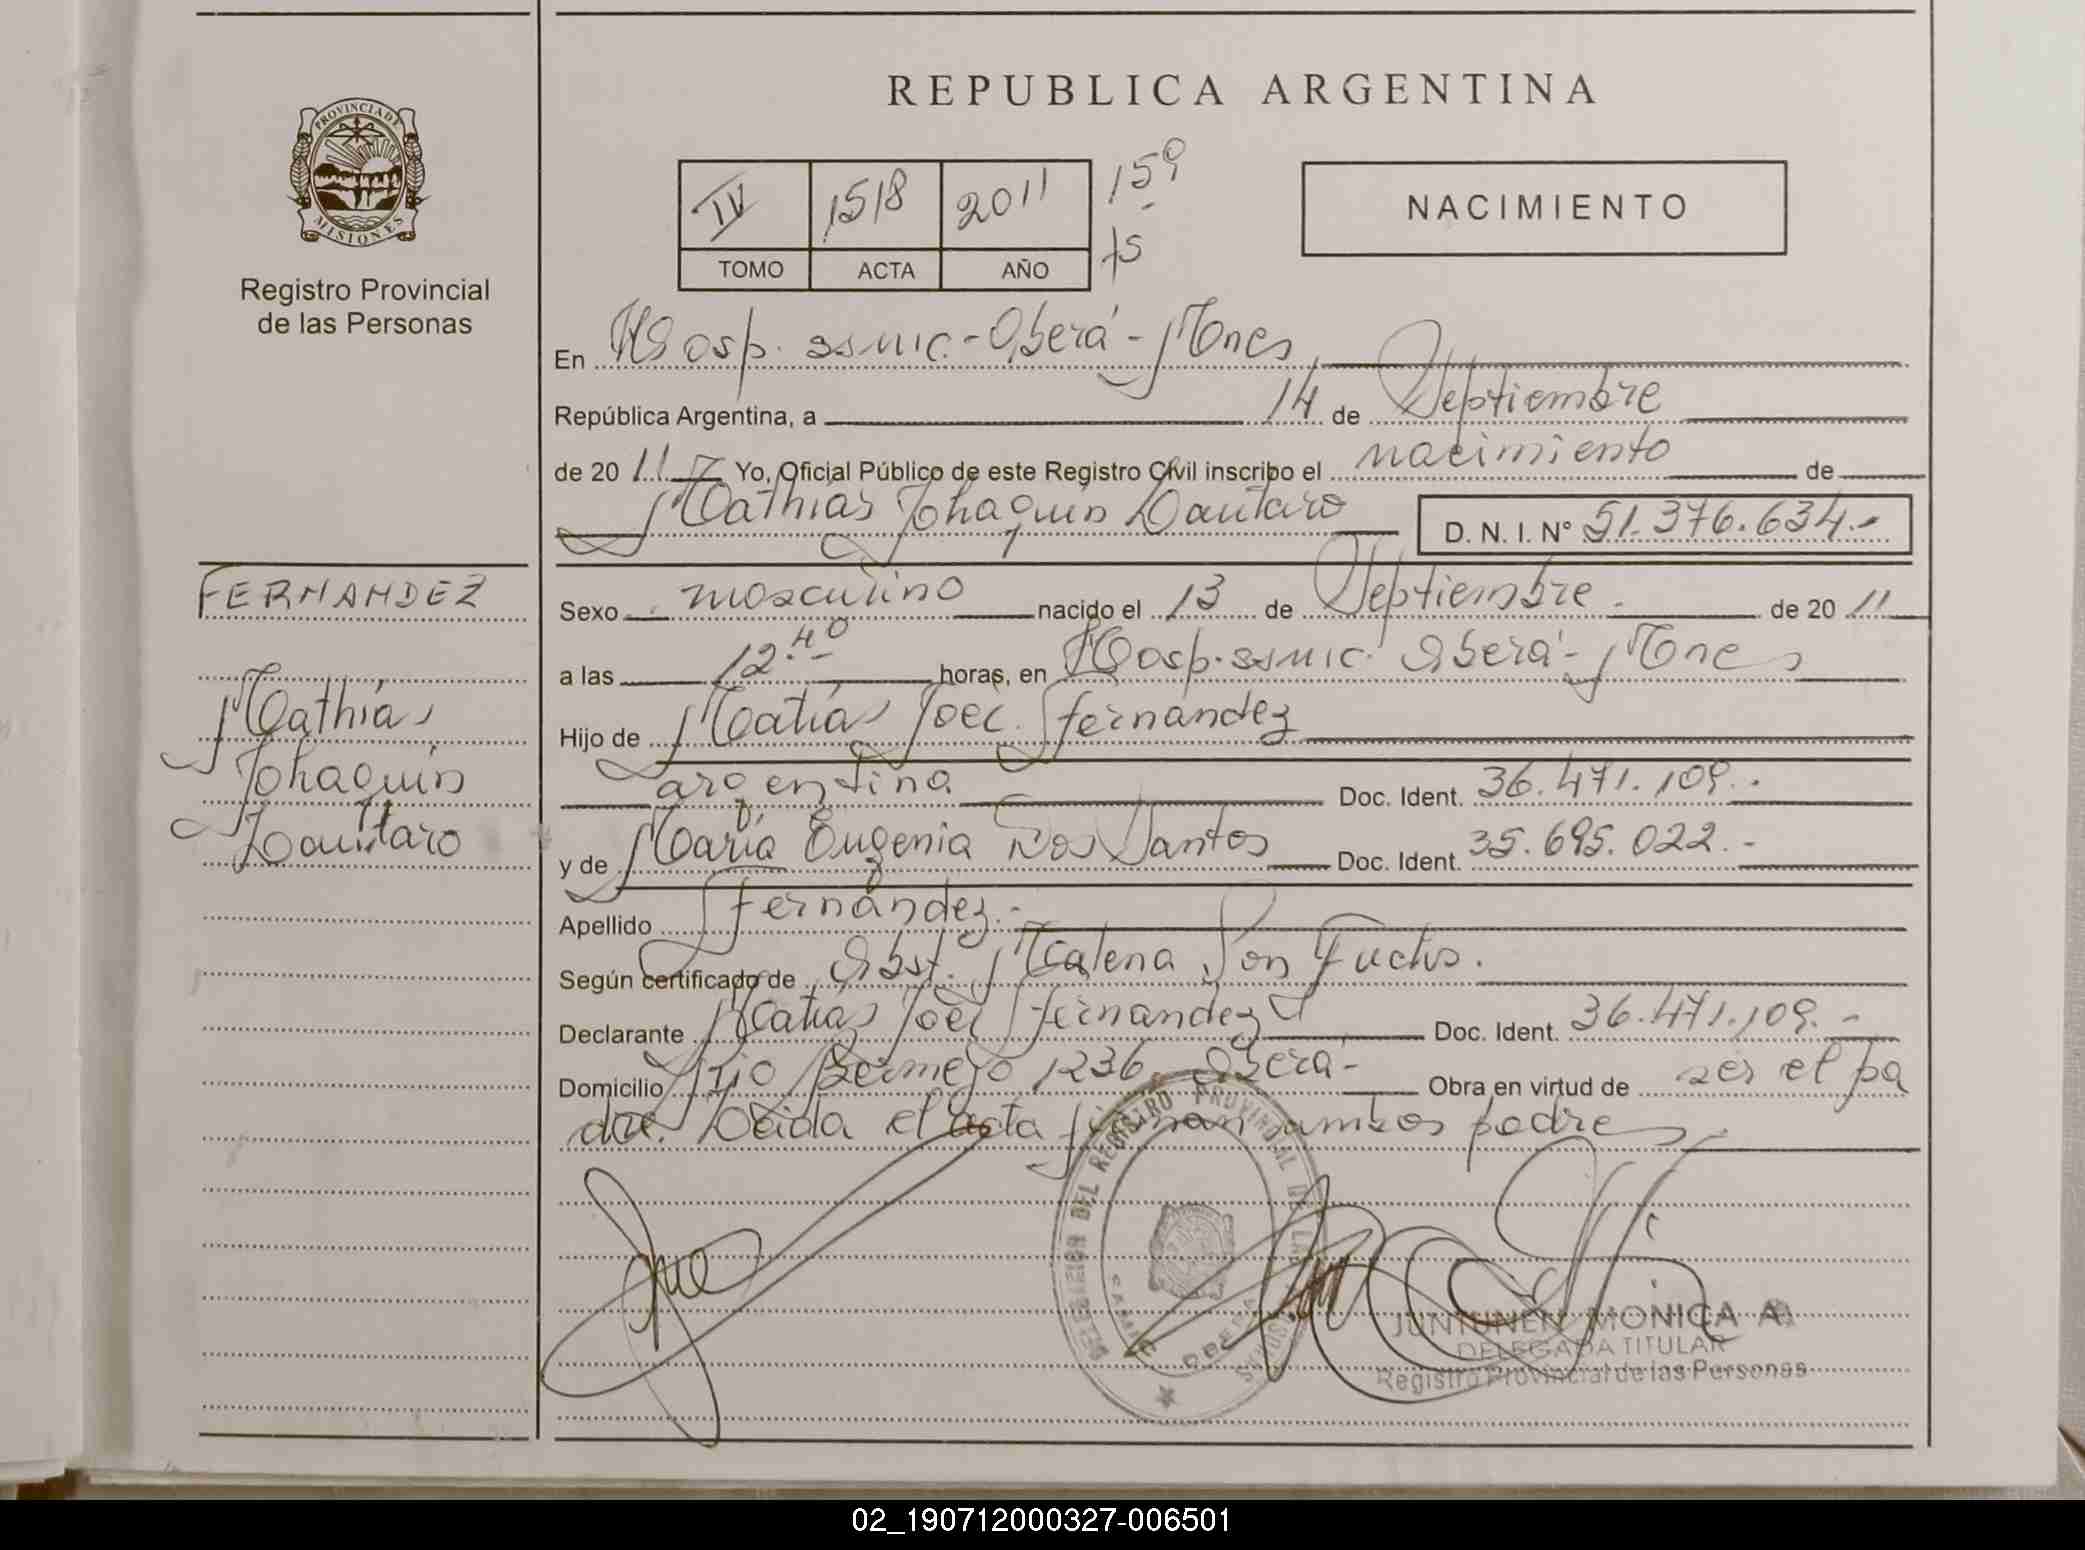 REPUBLICA ARGENTINA
PROVINCIA DE
MISIONES
Registro Provincial
de las Personas
IV 1518 2011
TOMO ACTA AÑO
15º
fs
NACIMIENTO
En Hosp. ssmic.-Oberá-Mnes
República Argentina, a 14 de Septiembre
de 20 11 Yo, Oficial Público de este Registro Civil inscribo el nacimiento de
Mathías Johaquín Lautaro D. N. I. N° 51.376.634.-
Sexo masculino nacido el 13 de Septiembre de 20 11
a las 12.40 horas, en Hosp. ssmic. Oberá-Mnes
Hijo de Matías Joel Fernández
argentina Doc. Ident. 36.471.109.-
y de María Eugenia Dos Santos Doc. Ident. 35.695.022.-
Apellido Fernández.-
Según certificado de Obst. Malena Von Fuchs.
Declarante Matías Joel Fernández Doc. Ident. 36.471.109.-
Domicilio Río Bermejo 1236 Oberá- Obra en virtud de ser el pa
dre. Leida el acta firman ambos padres
FERNANDEZ
Mathías
Johaquín
Lautaro
DELEGACION DEL REGISTRO PROVINCIAL DE LAS PERSONAS
JUNTUNEN MONICA A.
DELEGADA TITULAR
Registro Provincial de las Personas
02_190712000327-006501